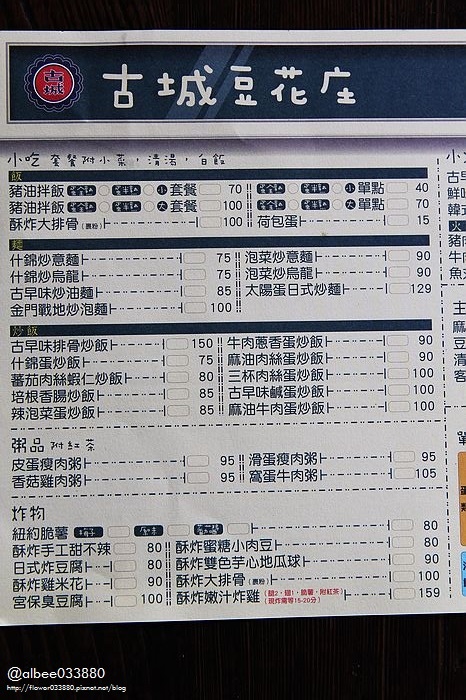 古城
古城豆花座
小吃 套餐附小菜，清湯，白飯
飯
豬油拌飯 小 套餐 70 小 單點 40
豬油拌飯 大 套餐 100 大 單點 70
酥炸大排骨（裹粉） 100 荷包蛋 15
麵
什錦炒意麵 75 泡菜炒意麵 90
什錦炒烏龍 75 泡菜炒烏龍 90
古早味炒油麵 85 太陽蛋日式炒麵 129
金門戰地炒泡麵 100
炒飯
古早味排骨炒飯 150 牛肉蔥香蛋炒飯 90
什錦蛋炒飯 75 麻油肉絲蛋炒飯 90
蕃茄肉絲蝦仁炒飯 80 三杯肉絲蛋炒飯 100
培根香腸炒飯 85 古早味鹹蛋炒飯 100
辣泡菜蛋炒飯 85 麻油牛肉蛋炒飯 100
粥品 附紅茶
皮蛋瘦肉粥 95 滑蛋瘦肉粥 95
香菇雞肉粥 95 窩蛋牛肉粥 105
炸物
紐約脆薯 梅子 80
酥炸手工甜不辣 80 酥炸蜜糖小肉豆 80
日式炸豆腐 80 酥炸雙色芋心地瓜球 90
酥炸雞米花 90 酥炸大排骨（裹粉） 100
宮保臭豆腐 100 酥炸嫩汁炸雞 159
@albee033880
http://flower033880.pixnet.net/blog